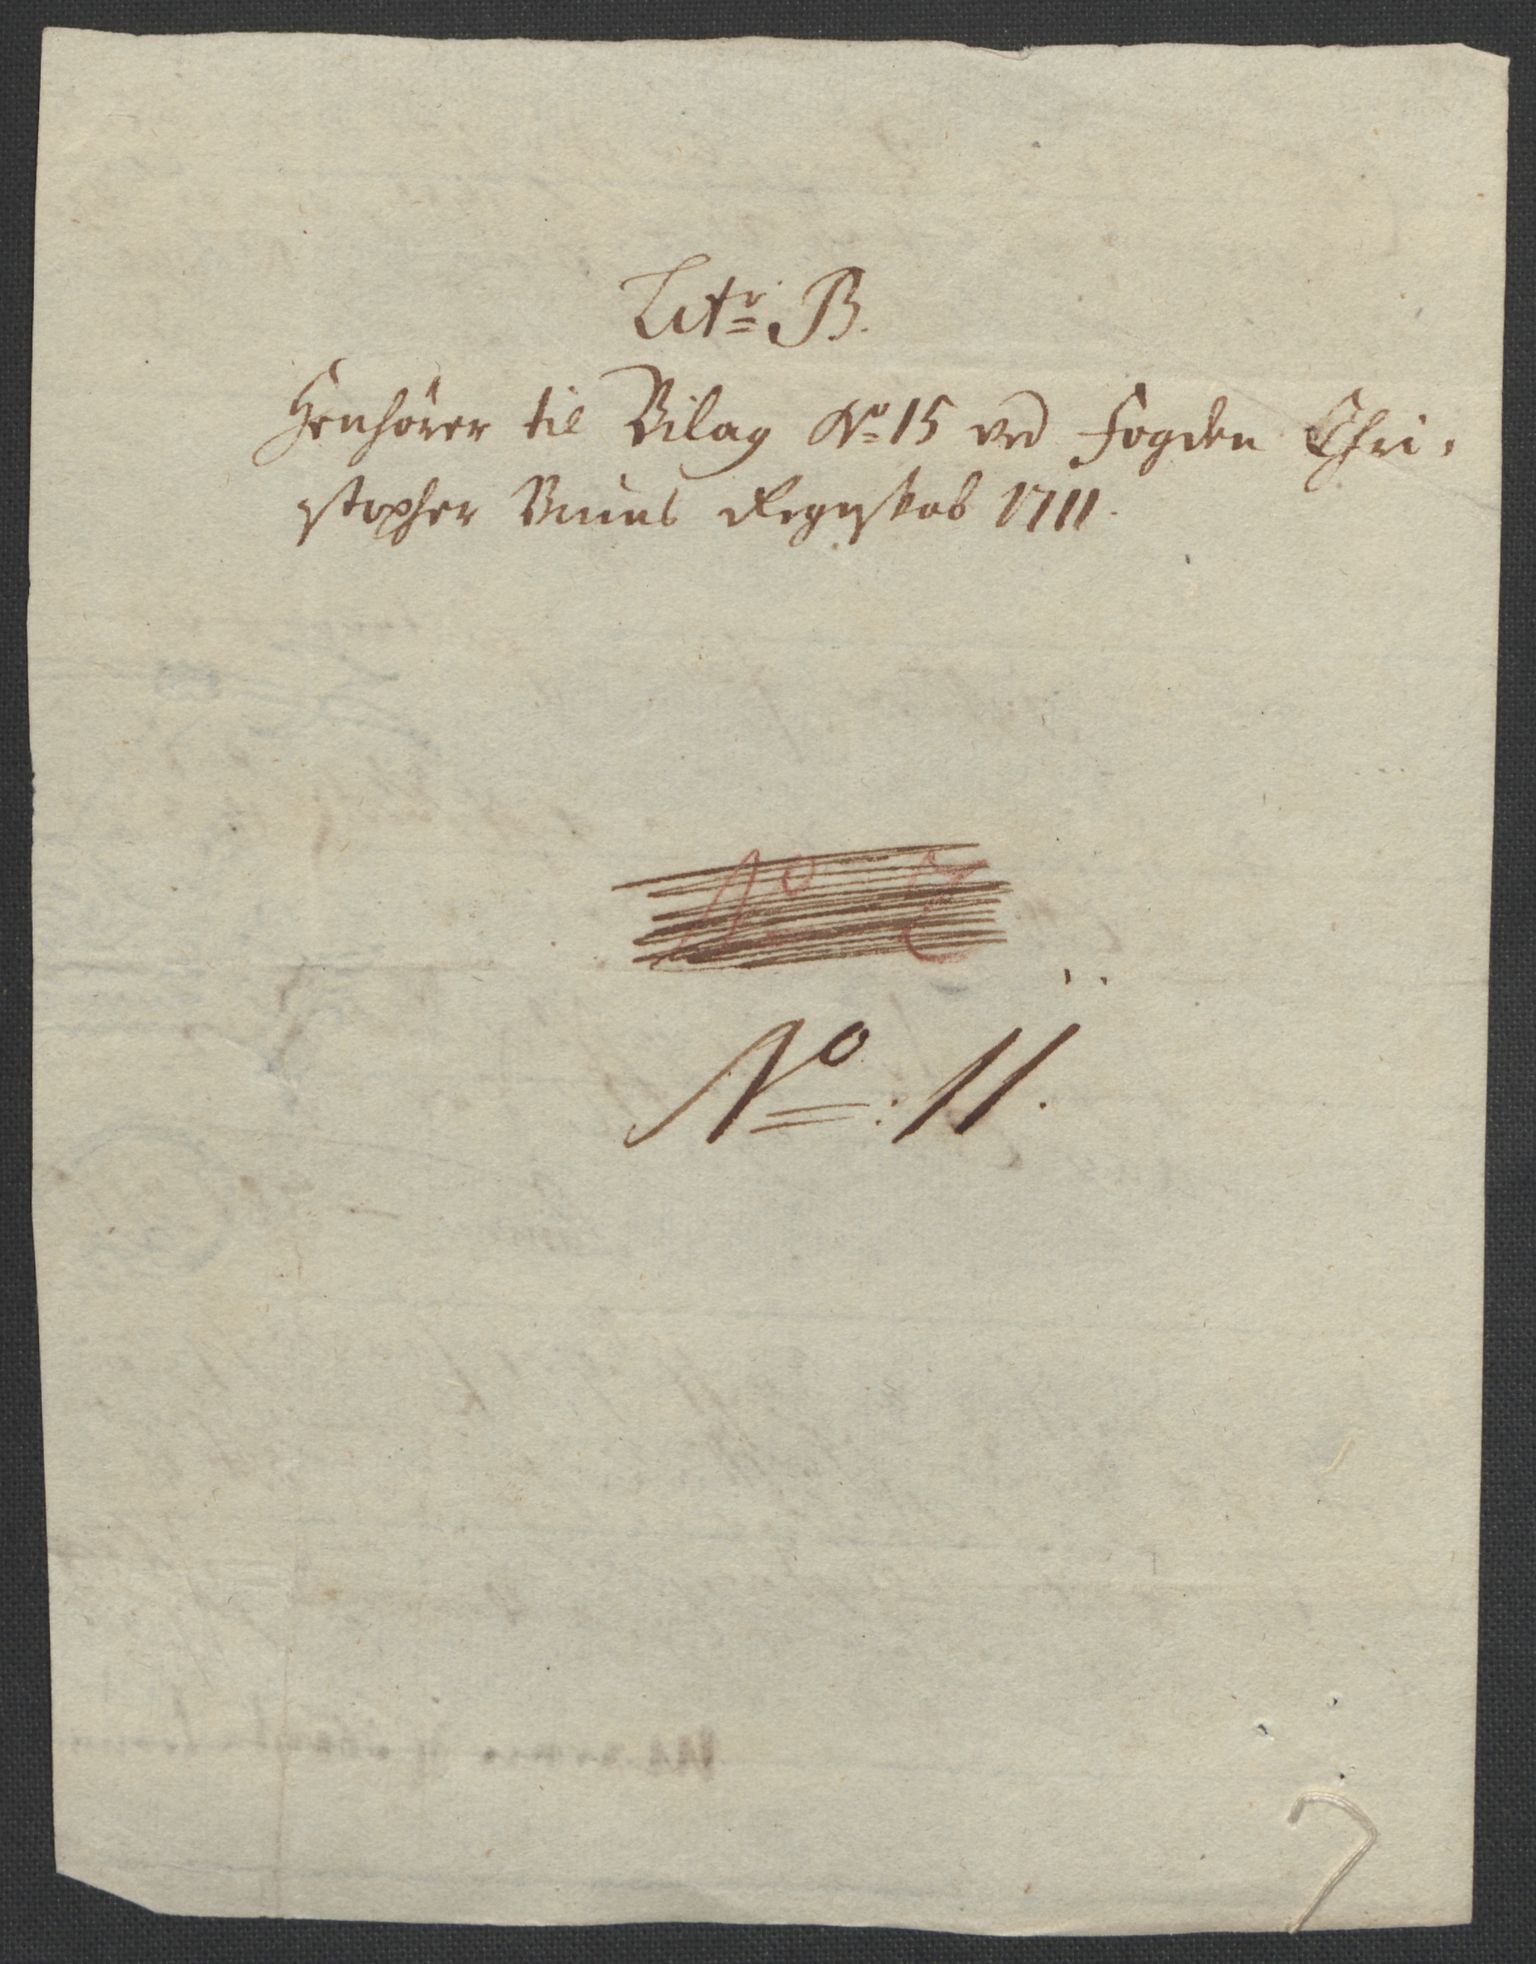 Litr B.
Henhörer til Bilag No 15 ved Fogden Chri-
stopher Bruns Regnskab 1711.
No: 11.